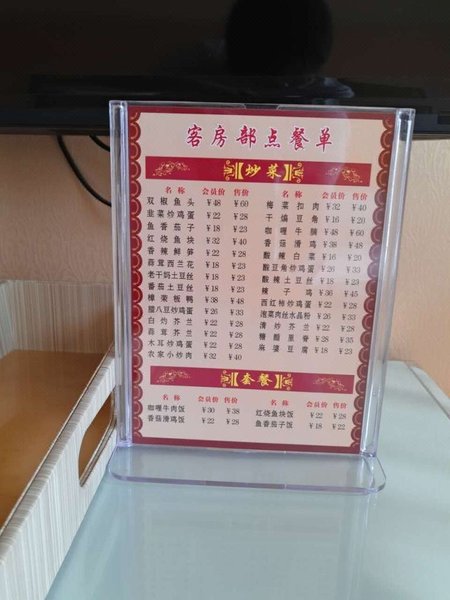 客房部点餐单
炒菜
名 称 会员价 售价
双椒鱼头 ￥48 ￥60
韭菜炒鸡蛋 ￥22 ￥28
鱼香茄子 ￥18 ￥23
红烧鱼块 ￥32 ￥40
香辣鲜笋 ￥22 ￥28
蒜茸西兰花 ￥18 ￥23
老干妈土豆丝 ￥18 ￥23
番茄土豆丝 ￥18 ￥23
樟茶板鸭 ￥38 ￥48
腊八豆炒鸡蛋 ￥26 ￥33
白灼芥兰 ￥22 ￥28
蒜茸芥兰 ￥22 ￥28
木耳炒鸡蛋 ￥22 ￥28
农家小炒肉 ￥32 ￥40
名 称 会员价 售价
梅菜扣肉 ￥32 ￥40
干煸豆角 ￥16 ￥20
咖喱牛腩 ￥48 ￥60
香菇滑鸡 ￥38 ￥48
酸辣白菜 ￥16 ￥20
酸豆角炒鸡蛋 ￥26 ￥33
酸辣土豆丝 ￥18 ￥23
辣子鸡 ￥36 ￥45
西红柿炒鸡蛋 ￥22 ￥28
泡菜肉丝水晶粉 ￥26 ￥33
清炒芥兰 ￥22 ￥28
糖醋里脊 ￥28 ￥35
麻婆豆腐 ￥18 ￥23
套餐
名 称 会员价 售价
咖喱牛肉饭 ￥30 ￥38
香菇滑鸡饭 ￥22 ￥28
名 称 会员价 售价
红烧鱼块饭 ￥22 ￥28
鱼香茄子饭 ￥18 ￥22